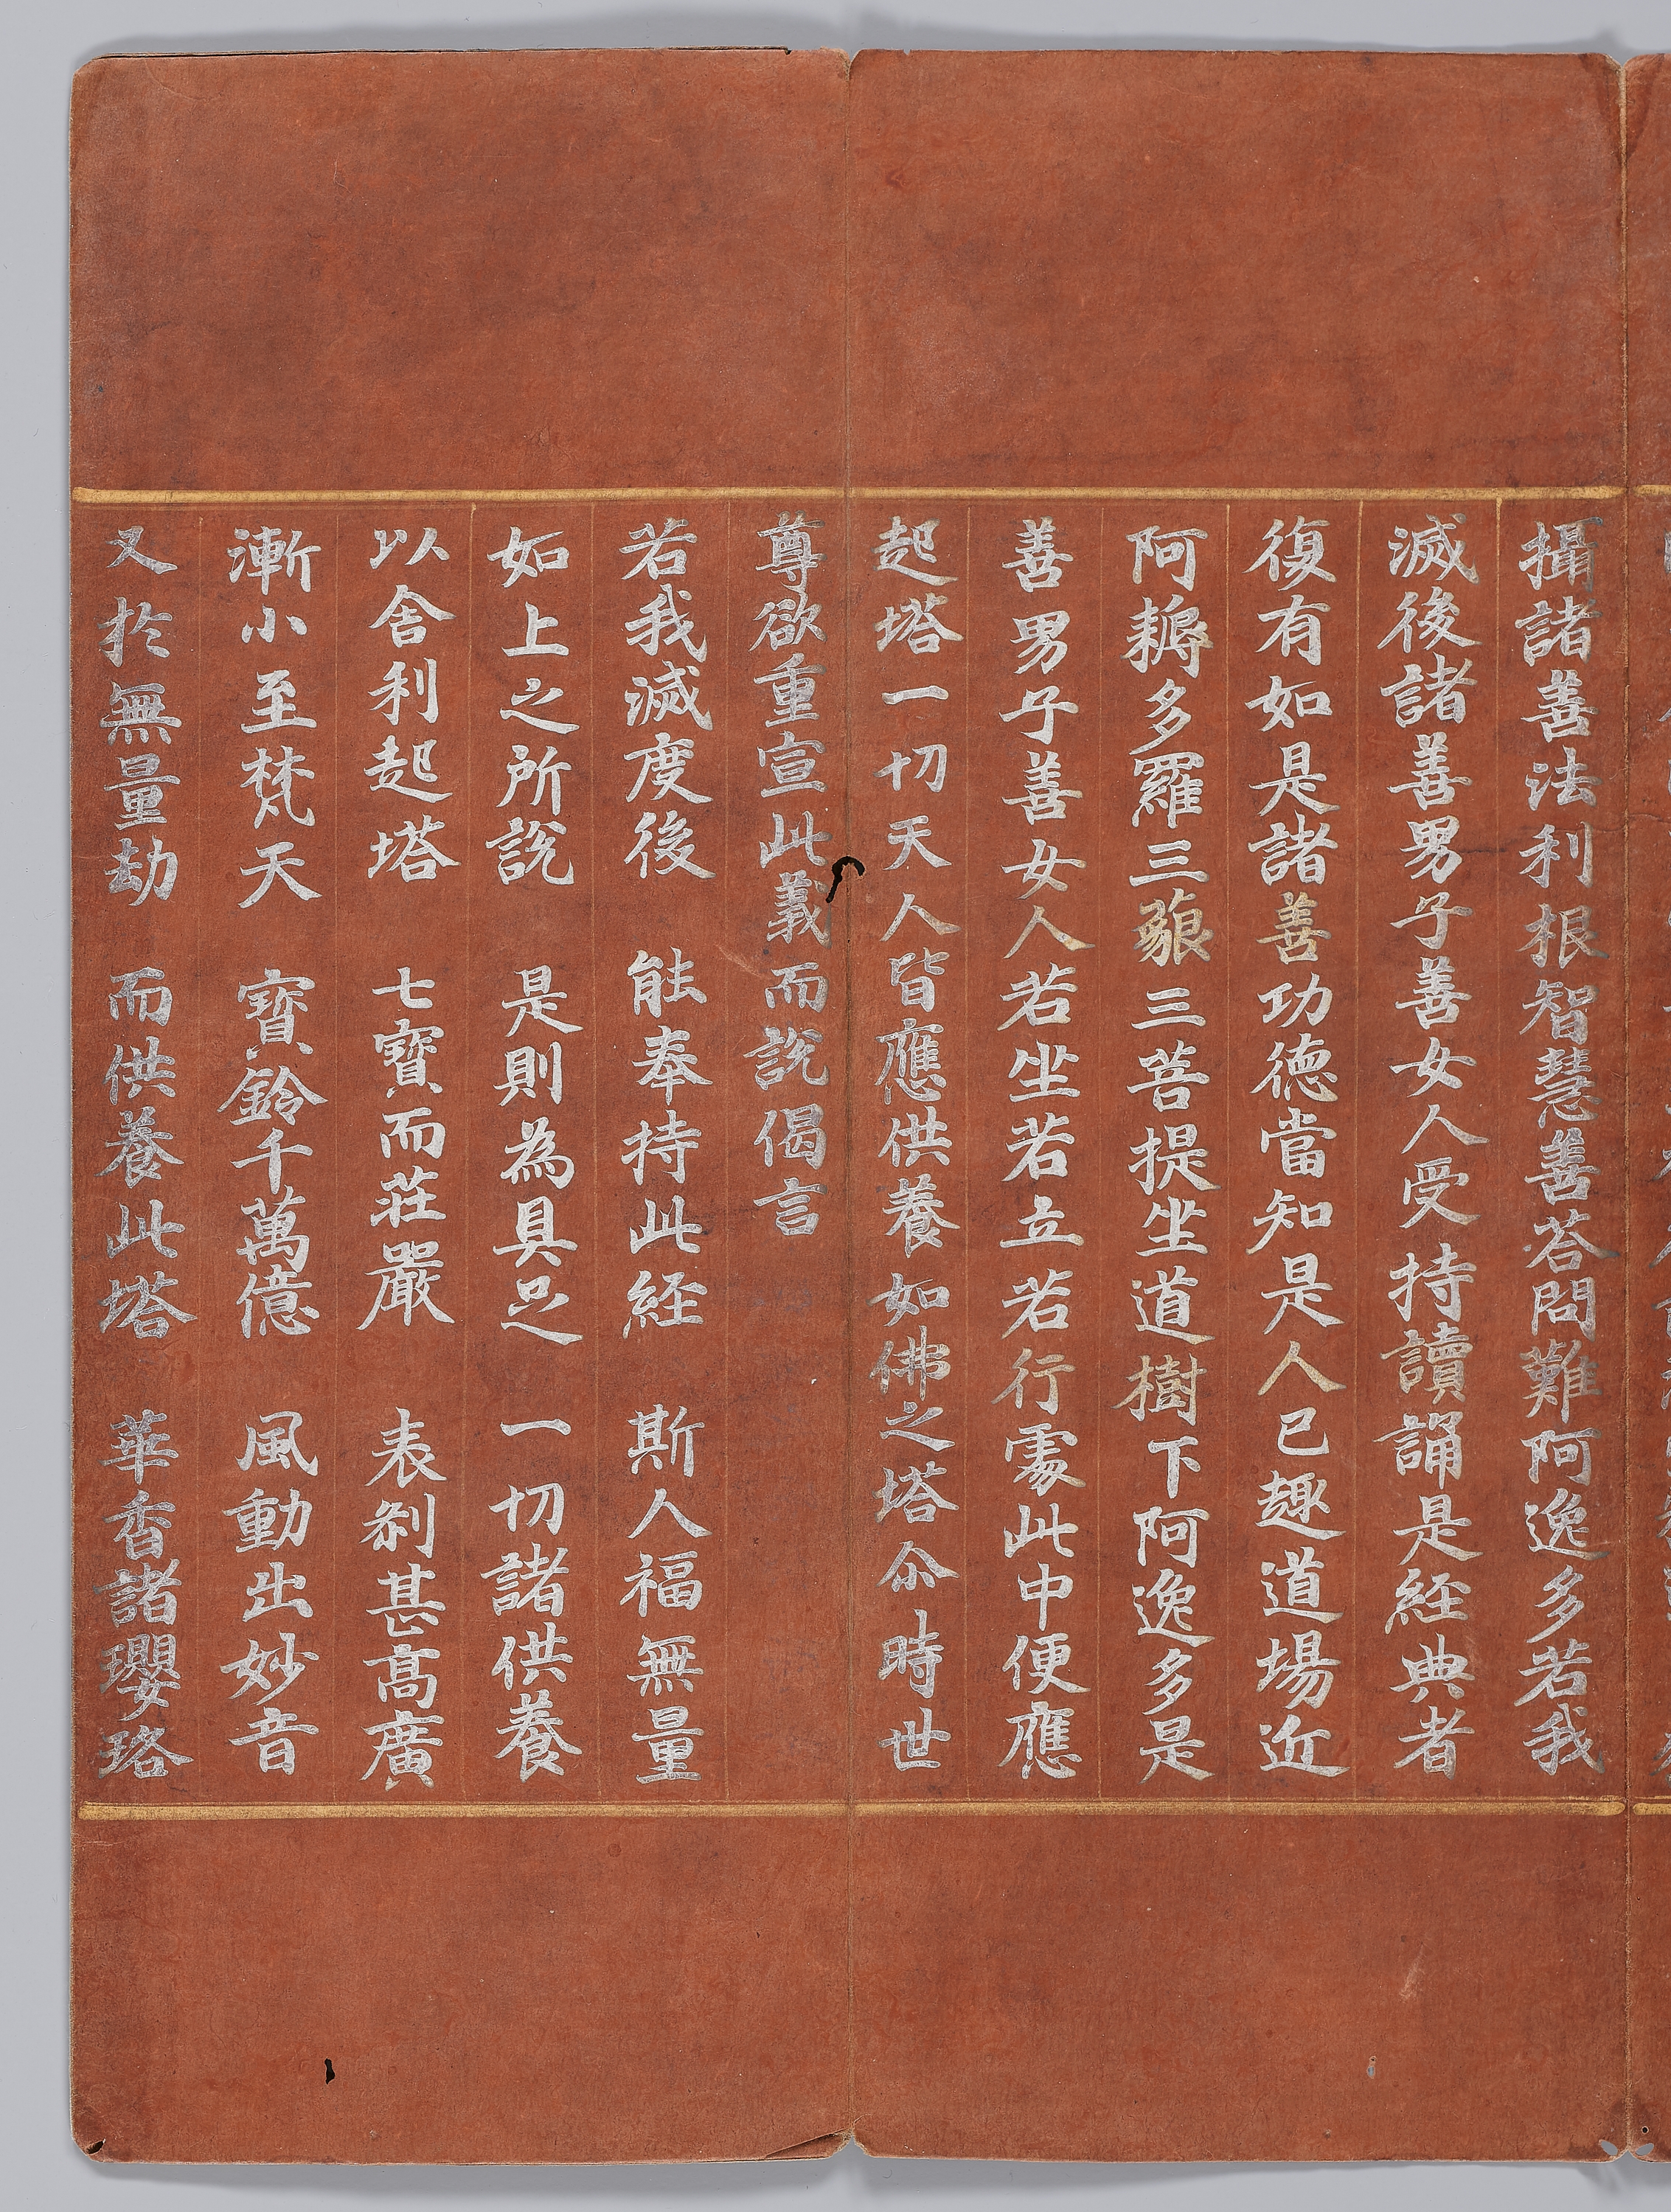 攝諸善法利根智慧善荅問難阿逸多若我
滅後諸善男子善女人受持讀誦是經典者
復有如是諸善功德當知是人已趣道場近
阿耨多羅三藐三菩提坐道樹下阿逸多是
善男子善女人若坐若立若行處此中便應
起塔一切天人皆應供養如佛之塔尒時世
尊欲重宣此義而說偈言
若我滅度後　能奉持此経　斯人福無量
如上之所說　是則為具足　一切諸供養
以舍利起塔　七寶而莊嚴　表剎甚高廣
漸小至梵天　寶鈴千萬億　風動出妙音
又於無量劫　而供養此塔　華香諸瓔珞